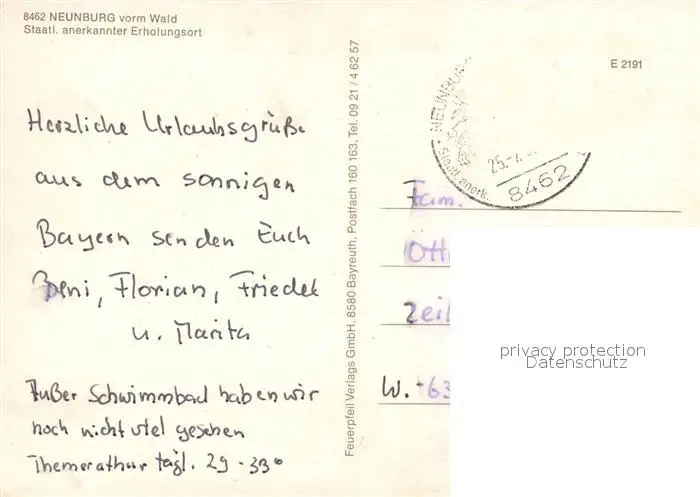 8462 NEUNBURG vorm Wald
Staatl. anerkannter Erholungsort
Herzliche Urlaubsgrüße
aus dem sonnigen
Bayern senden Euch
Beni, Florian, Friedel
u. Marita
Außer Schwimmbad haben wir
noch nicht viel gesehen
Themerathur tägl. 29-33°
Feuerpfeil Verlags GmbH, 8580 Bayreuth, Postfach 160 163, Tel. 09 21 / 4 62 57
E 2191
NEUNBU
Staatl. anerk.
25.-7.
8462
Fam.
Ott
Zeil
W.-63
privacy protection
Datenschutz